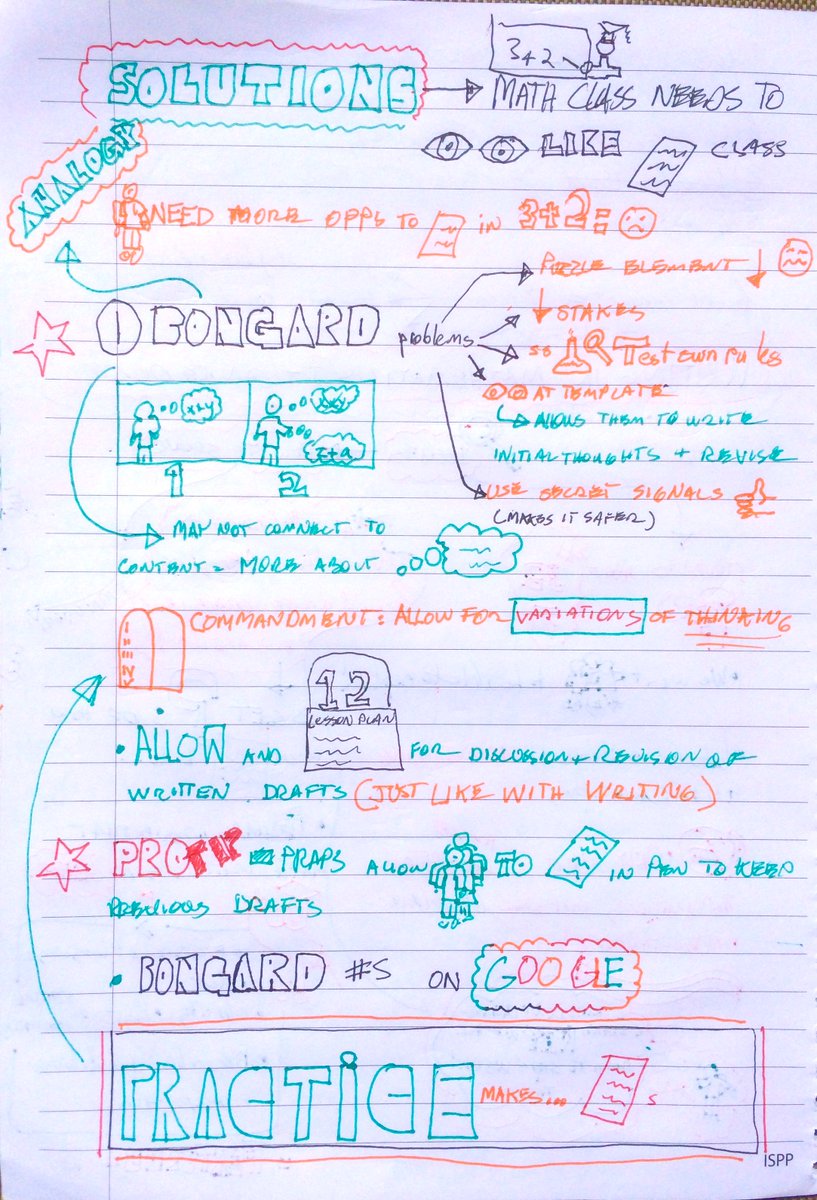 3+2
SOLUTIONS
MATH CLASS NEEDS TO
LIKE CLASS
ANALOGY
NEED MORE OPPS TO in 3+2=
PUZZLE ELEMENT
STAKES
1 BONGARD problems
so Test own rules
AT TEMPLATE
ALLOWS THEM TO WRITE
INITIAL THOUGHTS + REVISE
USE SECRET SIGNALS
(MAKES IT SAFER)
x+y
x+y
z+a
1 2
MAY NOT CONNECT TO
CONTENT = MORE ABOUT
COMMANDMENT: ALLOW FOR VARIATIONS OF THINKING
12
LESSON PLAN
• ALLOW AND FOR DISCUSSION + REVISION OF
WRITTEN DRAFTS (JUST LIKE WITH WRITING)
PRO TIP PRAPS ALLOW TO IN PEN TO KEEP
PREVIOUS DRAFTS
• BONGARD #S ON GOOGLE
PRACTICE MAKES... S
ISPP